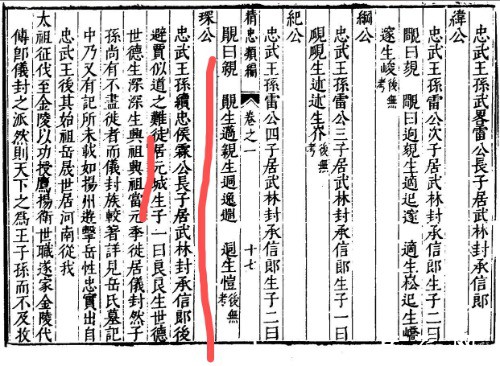 緯公
忠武王孫武畧雷公長子居武林封承信郎
忠武王孫雷公次子居武林封承信郎生子二曰
曰親 生迥親生适迟 適生崧迟生嶠
生峻後無考
綱公
忠武王孫雷公三子居武林封承信郎生子一曰
生述述生界後無考
紀公
忠武王孫雷公四子居武林封承信郎生子二曰
曰親 生適親生迥逸 迥生愷後無考
精忠類編 卷之一 十七
琛公
忠武王孫續忠侯霖公長子居武林封承信郎後
避賈似道之難徙居元城生子一曰良良生世德
世德生深深生興祖興祖當元季徙居儀封然子
孫尚有不盡徙者而儀封族較著詳見岳氏墓記
中乃又有記所未載如揚州遊擊岳性忠實出自
忠武王後其始祖岳晟世居河南從我
太祖征伐至金陵以功授鷹揚衛世職遂家金陵代
傳卽儀封之派然則天下之爲王子孫而不及攷